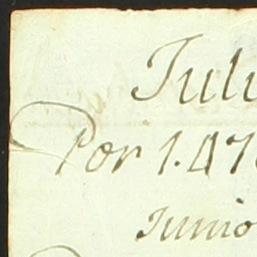 Juli
Por 1.47
Junio